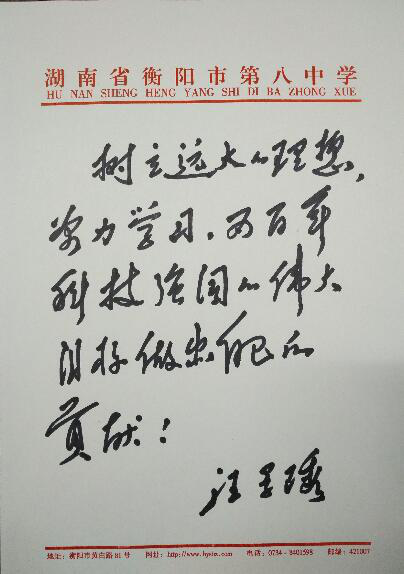 湖南省衡阳市第八中学
HU NAN SHENG HENG YANG SHI DI BA ZHONG XUE
树立远大的理想，
努力学习，为百年
科技强国的伟大
目标做出自己的
贡献！
汪
地址：衡阳市黄白路81号 网址：http://www.hyshz.com 电话：0734-8401598 邮编：421007